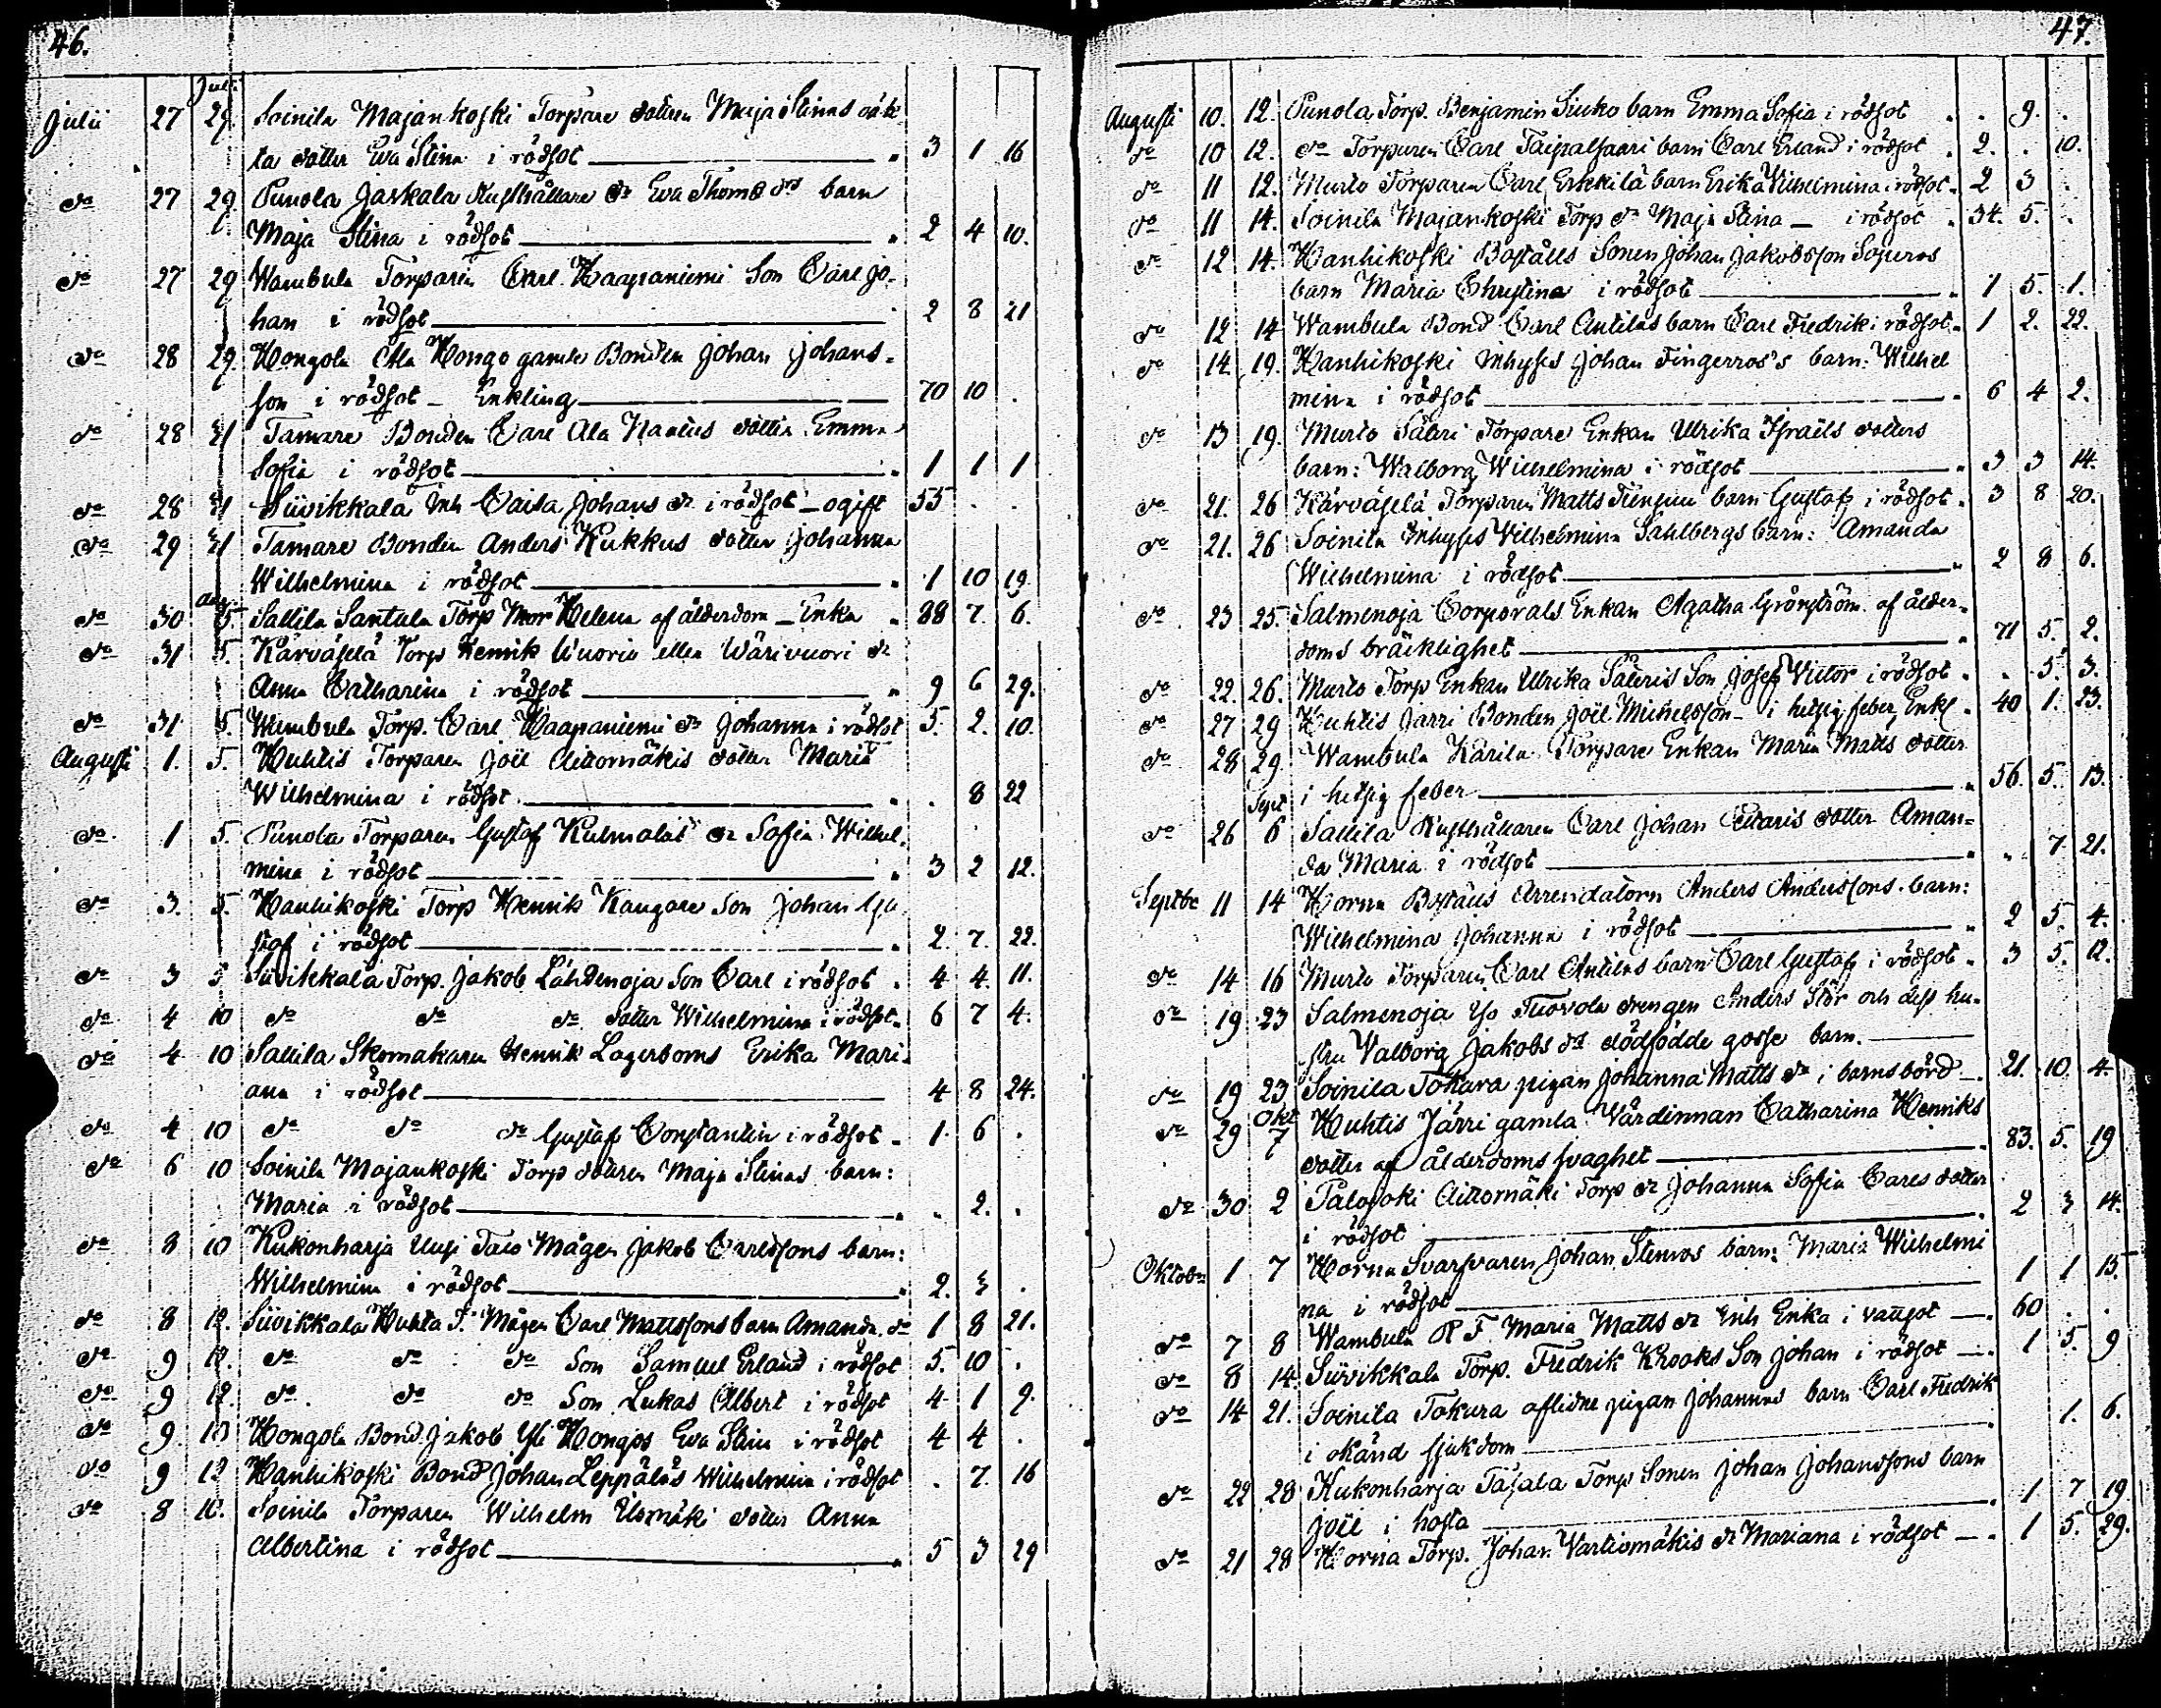 46.
Julii
Julii 27 29 Soinila Majankoski Torpare dottren Maja Stinas oäk-
ta dotter Eva Stina i rödsot 3 1 16
do 27 29 Punola Jaskala Rusthållare dr Eva Thomæ dr barn
Maja Stina i rödsot 2 4 10.
do 27 29 Wambula Torparen Carl Haapaniemi Son Carl Jo-
han i rödsot 2 8 21
do 28 29. Hongola Ala Hongo gamle Bonden Johan Johans-
son i rödsot - Enkling 70 10 .
do 28 31 Tamare Bonden Carl Ala Naatus dotter Emma
Sofia i rödsot 1 1 1
do 28 31 Siivikkala Inh Caisa Johans dr i rödsot - ogift 55 . .
do 29 31 Tamare Bonden Anders Kukkus dotter Johanna
Wilhelmina i rödsot 1 10 19.
Aug
do 30 5. Sallila Santula Torp Mor Helena af ålderdom - Enka 88 7. 6.
do 31 5. Kärväselä Torp Henrik Wuorio eller Wärivuori dr
Anna Catharina i rödsot 9 6 29.
do 31 5. Wambula Torp. Carl Haapaniemi dr Johanna i rödsot 5. 2. 10.
Augusti 1. 5. Huhtis Torparen Joel Aittomäkis dotter Maria
Wilhelmina i rödsot . 8 22
do 1 5. Punola Torparen Gustaf Kulmalas dr Sofia Wilhel-
mina i rödsot 3 2 12.
do 3. 5. Hanhikoski Torp Henrik Kangare Son Johan Gu
staf i rödsot 2. 7. 22.
do 3 5 Siivikkala Torp. Jakob Lähdenoja Son Carl i rödsot 4 4. 11.
do 4 10 do do do dotter Wilhelmina i rödsot 6 7 4.
do 4 10 Sallila Skomakaren Henrik Lagerboms Erika Mari-
ana i rödsot 4 8 24.
do 4 10 do do do Gustaf Constantin i rödsot 1. 6 .
do 6 10 Soinila Majankoski Torp dottren Maja Stinas barn:
Maria i rödsot . 2. .
do 8 10 Kukonharja Uusi Talo Mågen Jakob Carlssons barn:
Wilhelmina i rödsot 2. 3 .
do 8 12. Siivikkala Huhta T. Mågen Carl Mattssons barn Amanda do 1 8 21.
do 9 12. do do do Son Samuel Erland i rödsot 5. 10 .
do 9 12. do do do Son Lukas Albert i rödsot 4 1 9.
do 9. 13 Hongola Bond Jakob Yli Hongos Eva Stina i rödsot 4 4 .
do 9 12 Hanhikoski Bond Johan Leppäläs Wilhelmina i rödsot . 7. 16
do 8 10. Soinila Torparen Wilhelm Ulsmäki dotter Anna
Albertina i rödsot 5 3 29
47.
Augusti 10. 12. Punola Torp. Benjamin Siuko barn Emma Sofia i rödsot . 9. .
do 10 12. do Torparen Carl Taipalsaari barn Carl Erland i rödsot 2. . 10.
do 11 12. Murto Torparen Carl Erkkilä barn Erika Wilhelmina i rödsot 2 3 .
do 11 14. Soinila Majankoski Torp dr Maja Stina - i rödsot 34. 5. .
do 12 14. Hanhikoski Boställs Sonen Johan Jakobsson Sojuros
barn Maria Christina i rödsot 1 5. 1.
do 12 14 Wambula Bond Carl Antilas barn Carl Fredrik i rödsot 1 2. 22.
do 14. 19. Hanhikoski Inhyses Johan Fingerros's barn: Wilhel
mina i rödsot 6 4 2.
do 13 19. Murto Säteri Torpare Enkan Ulrika Israels dotters
barn: Walborg Wilhelmina i rödsot 3 3 14.
do 21. 26 Kärväselä Torparen Matts barn Gustaf i rödsot 3 8 20.
do 21. 26 Soinila Inhyses Wilhelmina Sahlbergs barn: Amanda
Wilhelmina i rödsot 2 8 6.
do 23 25. Salmenoja Corporals Enkan Agatha Grönström af ålder-
doms bräcklighet 71 5. 2.
do 22. 26. Murto Torp Enkan Ulrika Säteris Son Josef Victor i rödsot . 5. 3.
do 27 29 Huhtis Jarri Bonden Joel Michelsson - i hetsig feber, Enkl 40 1. 23.
do 28 29. Wambula Karila Torpare Enkan Maria Matts dotter
i hetsig feber 56. 5. 13.
Sept
do 26 6 Sallila Rusthållaren Carl Johan dotter Aman-
da Maria i rödsot . 7. 21.
Septbr 11 14 Horna Boställs Arrendatorn Anders Anderssons barn:
Wilhelmina Johanna i rödsot 2 5. 4.
do 14 16 Murto Torparen Carl Antilas barn Carl Gustaf i rödsot 3 5. 12.
do 19 23 Salmenoja Iso Tuovola drengen Anders Stör och dess hu-
stru Valborg Jakobs dr dödfödde gosse barn.
do 19 23 Soinila Tokura pigan Johanna Matts dr i barnsbörd 21. 10. 4.
Okt
do 29 7 Huhtis Järri gamla Värdinnan Catharina Henriks
dotter af ålderdoms svaghet 83. 5. 19
do 30 2 Palojoki Aittomäki Torp dr Johanna Sofia Carls dotter
i rödsot 2 3 14.
Oktober 1 7 Horna Svarfvaren Johan Stenros barn: Maria Wilhelmi
na i rödsot 1 1 15.
do 7 8 Wambula R F. Maria Matts dr Inh Enka i vattsot 60 . .
do 8 14. Siivikkala Torp. Fredrik Krooks Son Johan i rödsot 1 5. 9
do 14 21. Soinila Tokura aflidne pigan Johannas barn Carl Fredrik
i okänd sjukdom 1. 6.
do 22 28 Kukonharja Täsala Torp Sonen Johan Johanssons barn
Joel i hosta 1 7 19.
do 21 28 Horna Torp. Johan Vartiomäkis dr Mariana i rödsot 1 5. 29.